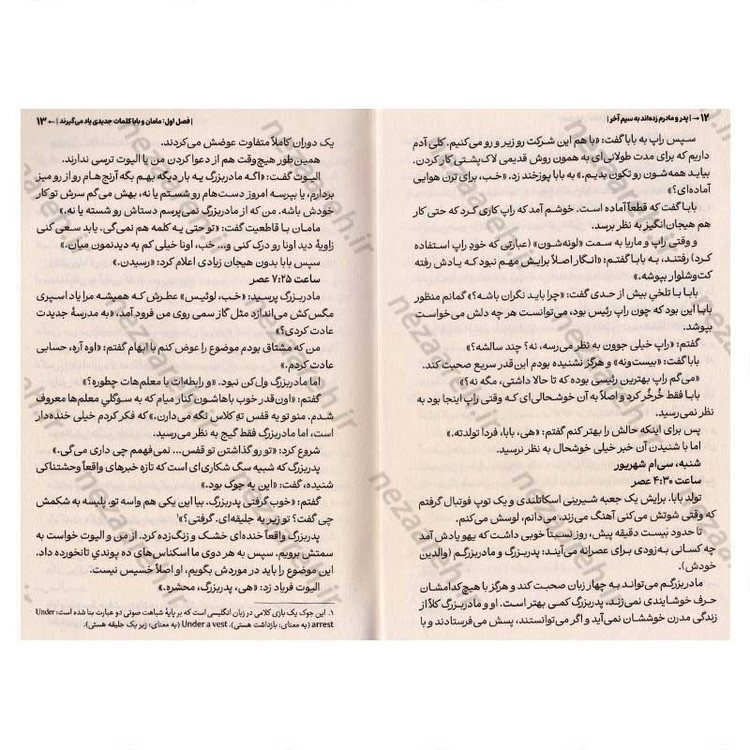 ۱۲ → | پدر و مادرم زده‌اند به سیم آخر |
سپس راپ به بابا گفت: «با هم این شرکت رو زیر و رو می‌کنیم. کلی آدم
داریم که برای مدت طولانی‌ای به همون روش قدیمی لاک‌پشتی کار کردن.
بیاید همه‌شون رو تکون بدیم.» به بابا پوزخند زد. «خب، برای ترن هوایی
آماده‌ای؟»
بابا گفت که قطعاً آماده است. خوشم آمد که راپ کاری کرد که حتی کار
هم هیجان‌انگیز به نظر برسد.
و وقتی راپ و ماریا به سمت «لونه‌شون» (عبارتی که خودِ راپ استفاده
کرد) رفتند، به بابا گفتم: «انگار اصلاً برایش مهم نبود که یادش رفته
کت‌وشلوار بپوشه.»
بابا با تلخیِ بیش از حدی گفت: «چرا باید نگران باشه؟» گمانم منظور
بابا این بود که چون راپ رئیس بود، می‌توانست هر چه دلش می‌خواست
بپوشد.
گفتم: «راپ خیلی جوون به نظر می‌رسه، نه؟ چند سالشه؟»
بابا گفت: «بیست‌ونه» و هرگز نشنیده بودم این‌قدر سریع صحبت کند.
«می‌گم راپ بهترین رئیسی بوده که تا حالا داشتی، مگه نه؟»
بابا فقط خُرخُر کرد و اصلاً به آن خوشحالی‌ای که وقتی راپ اینجا بود به
نظر نمی‌رسید.
پس برای اینکه حالش را بهتر کنم گفتم: «هی، بابا، فردا تولدته.»
اما با شنیدن آن خبر خیلی خوشحال به نظر نرسید.
شنبه، سی‌ام شهریور
ساعت ۴:۳۰ عصر
تولد بابا. برایش یک جعبه شیرینی اسکاتلندی و یک توپ فوتبال گرفتم
که وقتی شوتش می‌کنی آهنگ می‌زند. می‌دانم، لوسش می‌کنم.
تا حدود بیست دقیقه پیش، روز نسبتاً خوبی داشت که یهو یادش آمد
چه کسانی به‌زودی برای عصرانه می‌آیند: پدربزرگ و مادربزرگم (والدین
خودش).
مادربزرگم می‌تواند به چهار زبان صحبت کند و هرگز با هیچ‌کدامشان
حرف خوشایندی نمی‌زند. پدربزرگ کمی بهتر است. او و مادربزرگ کلاً از
زندگی مدرن خوششان نمی‌آید و اگر می‌توانستند، پسش می‌فرستادند و با
| فصل اول: مامان و بابا کلمات جدیدی یاد می‌گیرند | ← ۱۳
یک دوران کاملاً متفاوت عوضش می‌کردند.
همین‌طور هیچ‌وقت هم از دعوا کردن من یا الیوت ترسی ندارند.
الیوت گفت: «اگه مادربزرگ یه بار دیگه بهم بگه آرنج‌هام رو از رو میز
بردارم، یا بپرسه امروز دست‌هام رو شستم یا نه، بهش می‌گم سرش تو کار
خودش باشه. من که از مادربزرگ نمی‌پرسم دستاش رو شسته یا نه.»
مامان با قاطعیت گفت: «تو حتی یه کلمه هم نمی‌گی. باید سعی کنی
زاویهٔ دید اونا رو درک کنی و... خب، اونا خیلی کم به دیدنمون میان.»
سپس بابا بدون هیجان زیادی اعلام کرد: «رسیدن.»
ساعت ۷:۲۵ عصر
مادربزرگ پرسید: «خب، لوئیس» عطرش که همیشه مرا یاد اسپری
مگس‌کش می‌اندازد مثل گاز سمی روی من فرود آمد، «به مدرسهٔ جدیدت
عادت کردی؟»
من که مشتاق بودم موضوع را عوض کنم با ابهام گفتم: «اوه آره، حسابی
عادت کردم.»
اما مادربزرگ ول‌کن نبود. «و رابطه‌ات با معلم‌ها چطوره؟»
گفتم: «اون‌قدر خوب باهاشون کنار میام که به سوگلیِ معلم‌ها معروف
شدم. منو تو یه قفس تهِ کلاس نگه می‌دارن.» که فکر کردم خیلی خنده‌دار
است، اما مادربزرگ فقط گیج به نظر می‌رسید.
شروع کرد: «تو رو گذاشتن تو قفس... نمی‌فهمم چی داری می‌گی.»
پدربزرگ که شبیه سگ شکاری‌ای است که تازه خبرهای واقعاً وحشتناکی
شنیده، گفت: «این یه جوک بود.»
گفتم: «خوب گرفتی پدربزرگ. بیا این یکی هم واسه تو. پلیسه به شکمش
چی گفت؟ تو زیر یه جلیقه‌ای. گرفتی؟»¹
پدربزرگ واقعاً خنده‌ای خشک و زنگ‌زده کرد. از من و الیوت خواست به
سمتش برویم. سپس به هر دوی ما اسکناس‌های ده پوندیِ تانخورده داد.
این موضوع را باید در موردش بگویم. او اصلاً خسیس نیست.
الیوت فریاد زد: «هی، پدربزرگ، محشره.»
۱. این جوک یک بازی کلامی در زبان انگلیسی است که بر پایهٔ شباهت صوتی دو عبارت بنا شده است: Under
arrest (به معنای: بازداشت هستی). Under a vest (به معنای: زیر یک جلیقه هستی).
nezaareh.ir